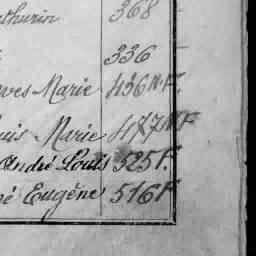 thurin 368
336
ves Marie 436 N.F.
uis Marie 477 N F
André Louis 525 F.
é Eugène 516 F